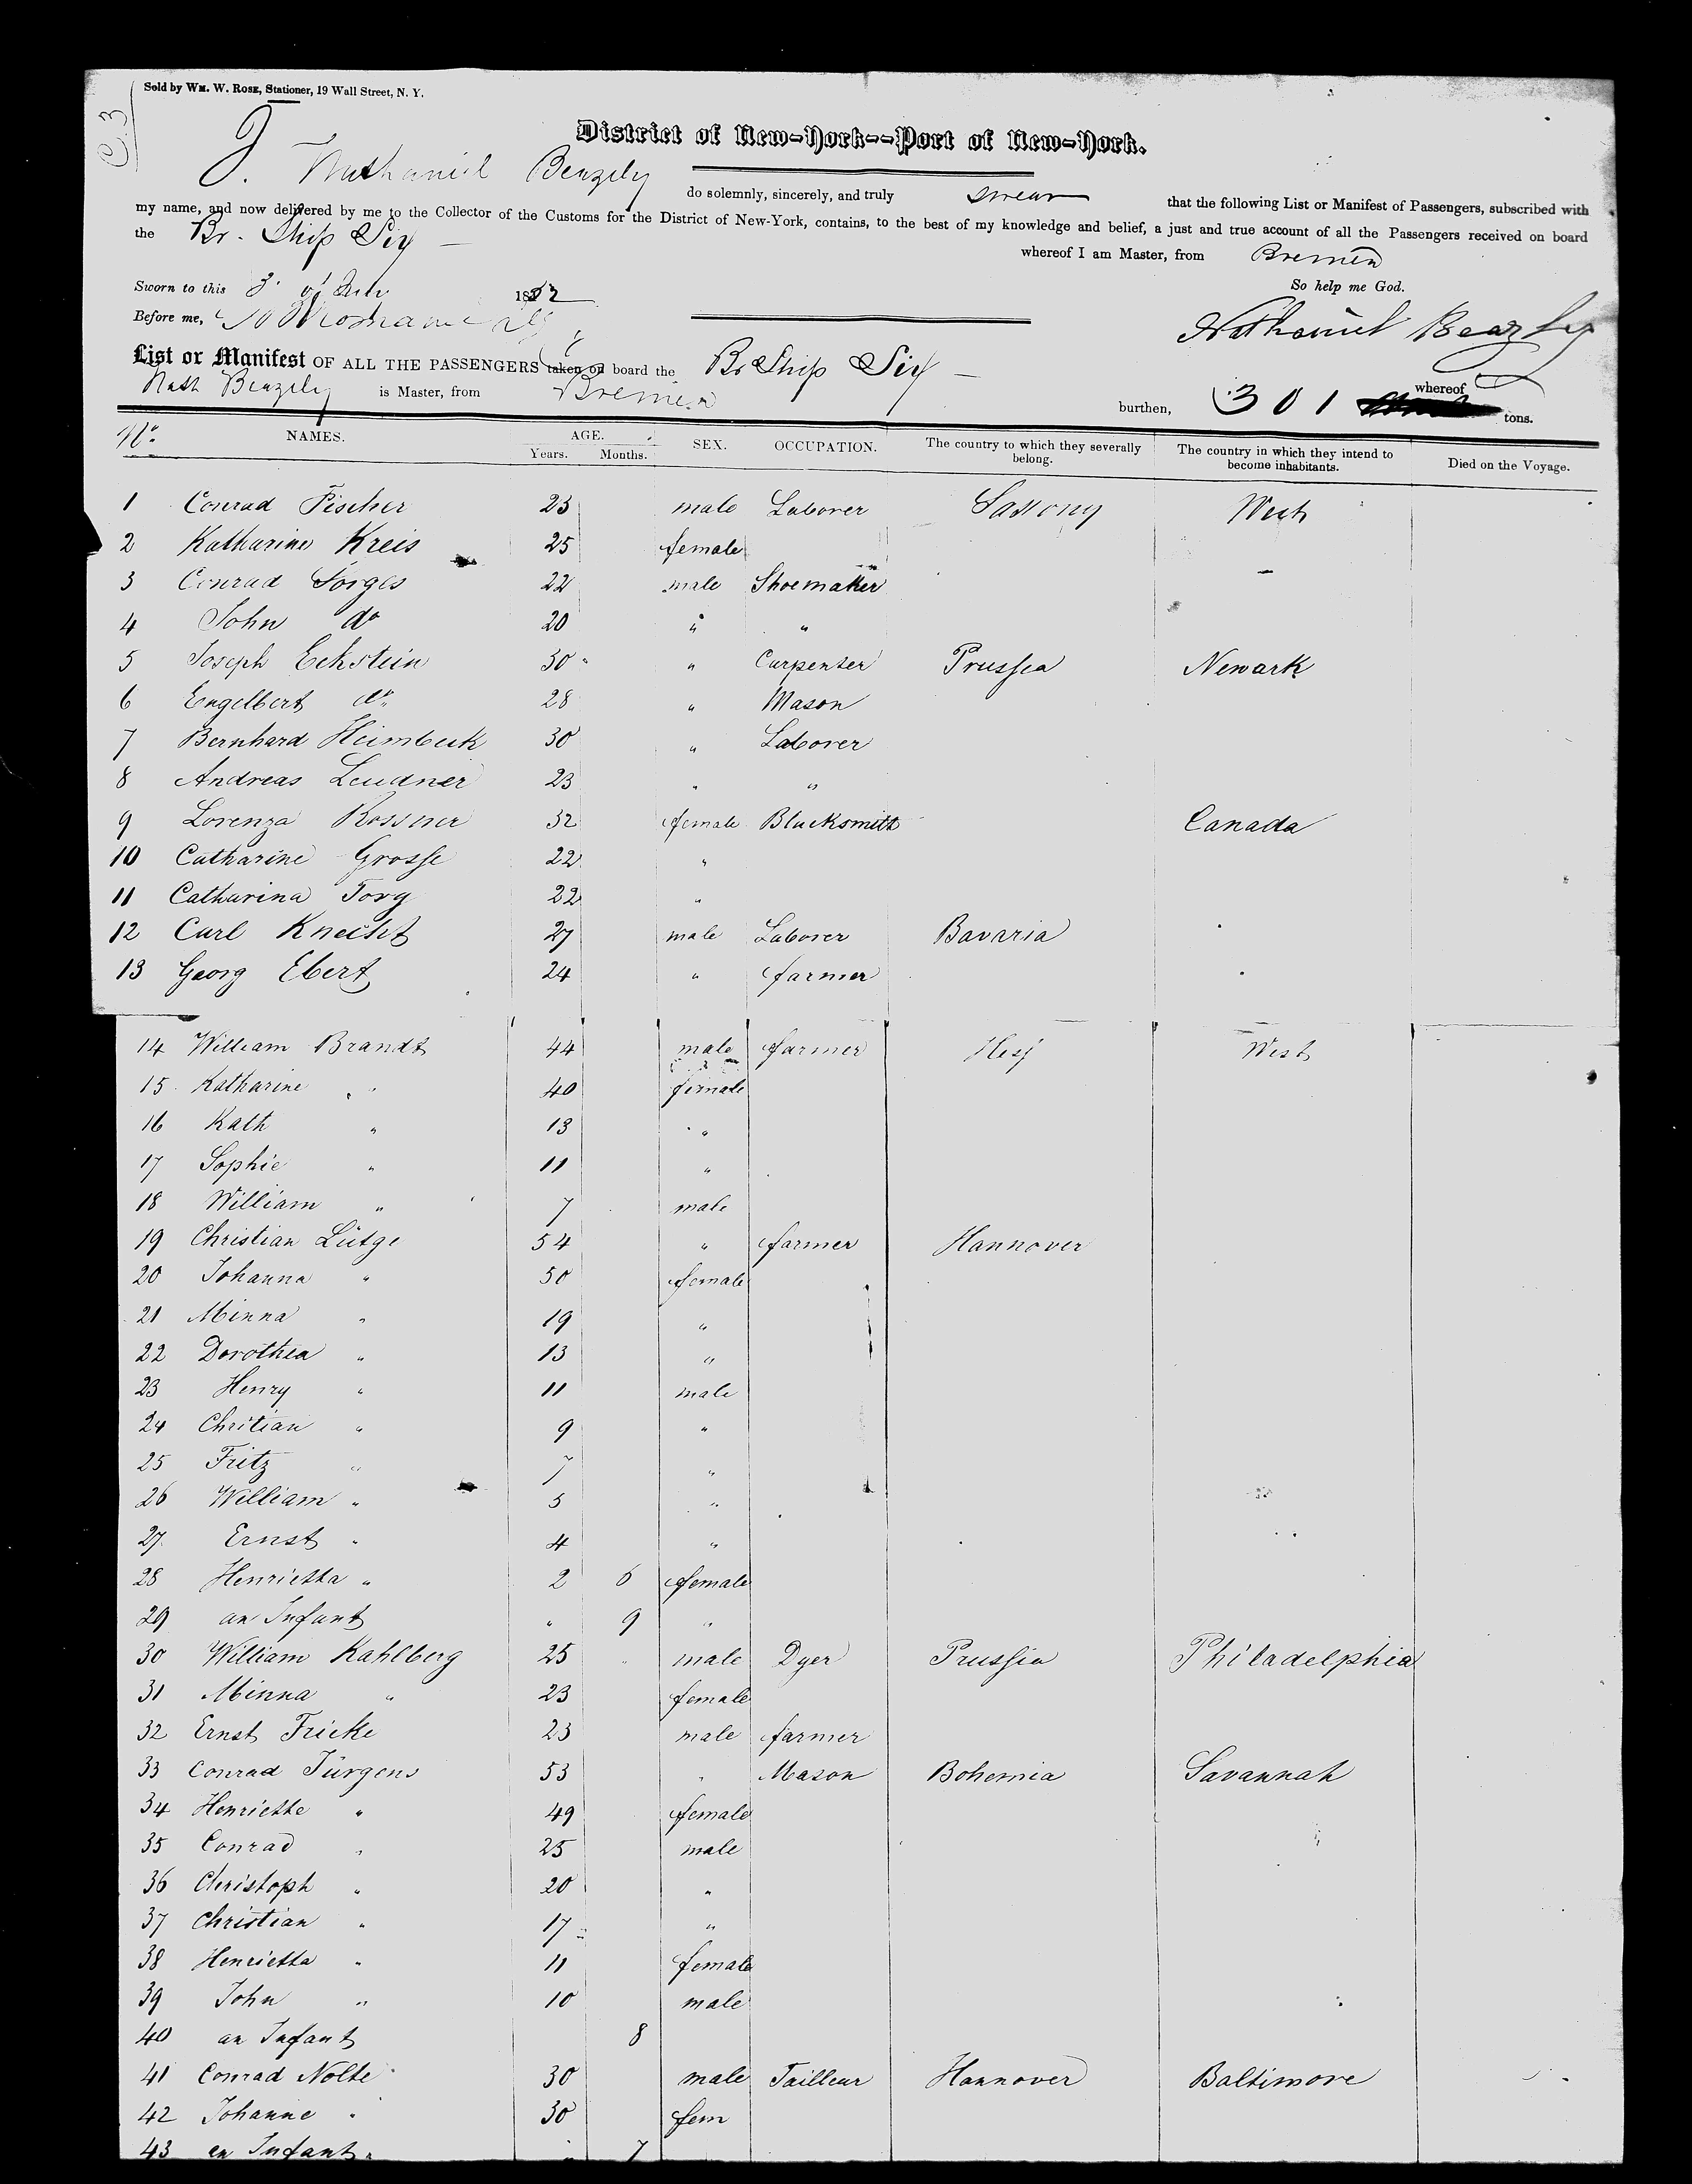 C.3
Sold by WM. W. ROSE, Stationer, 19 Wall Street, N. Y.
District of New-York--Port of New-York.
I. Nathaniel Beazely do solemnly, sincerely, and truly swear that the following List or Manifest of Passengers, subscribed with
my name, and now delivered by me to the Collector of the Customs for the District of New-York, contains, to the best of my knowledge and belief, a just and true account of all the Passengers received on board
the Br. Ship Sir whereof I am Master, from Bremen
So help me God.
Sworn to this 3 of 1852
Before me,
Nathaniel Beazley
List or Manifest OF ALL THE PASSENGERS taken on board the Br Ship Sir whereof
Nath Beazely is Master, from Bremen burthen, 301 tons.
No. NAMES. AGE. SEX. OCCUPATION. The country to which they severally belong. The country in which they intend to become inhabitants. Died on the Voyage.
Years. Months.
1 Conrad Fischer 23 male Laborer Saxony West
2 Katharine Kreis 25 female
3 Conrad Sorges 22 male Shoemaker
4 John do 20 " "
5 Joseph Eckstein 30 " Carpenter Prussia Newark
6 Engelbert do 28 " Mason
7 Bernhard Heimbeck 30 " Laborer
8 Andreas Leudner 23 " "
9 Lorenza Rossner 32 female Blacksmith Canada
10 Catharine Grosse 22 "
11 Catharina Torg 22 "
12 Carl Knecht 27 male Laborer Bavaria
13 Georg Ebert 24 " farmer
14 William Brandt 44 male farmer Hess West
15 Katharine " 40 female
16 Kath " 13 "
17 Sophie " 11 "
18 William " 7 male
19 Christian Lütge 54 " farmer Hannover
20 Johanna " 50 female
21 Minna " 19 "
22 Dorothea " 13 "
23 Henry " 11 male
24 Chritian " 9 "
25 Fritz " 7 "
26 William " 5 "
27 Ernst " 4 "
28 Henrietta " 2 6 female
29 an Infant " 9 "
30 William Kahlberg 25 male Dyer Prussia Philadelphia
31 Minna " 23 female
32 Ernst Fricke 23 male farmer
33 Conrad Jürgens 53 " Mason Bohemia Savannah
34 Henriette " 49 female
35 Conrad " 25 male
36 Christoph " 20 "
37 Christian " 17 "
38 Henrietta " 11 female
39 John " 10 male
40 an Infant 8
41 Conrad Nolte 30 male Tailleur Hannover Baltimore
42 Johanne " 30 fem
43 an Infant " " 7